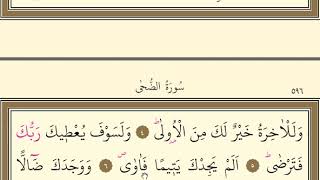 سُورَةُ الضُّحٰى ٥٩٦
وَلَلْاٰخِرَةُ خَيْرٌ لَكَ مِنَ الْاُو۫لٰىۜ ﴿٤﴾ وَلَسَوْفَ يُعْط۪يكَ رَبُّكَ
فَتَرْضٰىۜ ﴿٥﴾ اَلَمْ يَجِدْكَ يَت۪يمًا فَاٰوٰىۖ ﴿٦﴾ وَوَجَدَكَ ضَٓالًّا